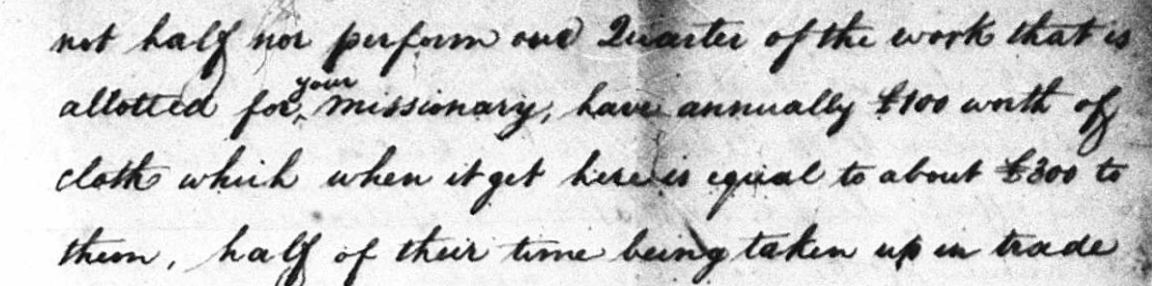 not half nor perform one Quarter of the work that is
allotted for your missionary, have annually £100 worth of
cloth which when it get here is equal to about £300 to
them, half of their time being taken up in trade